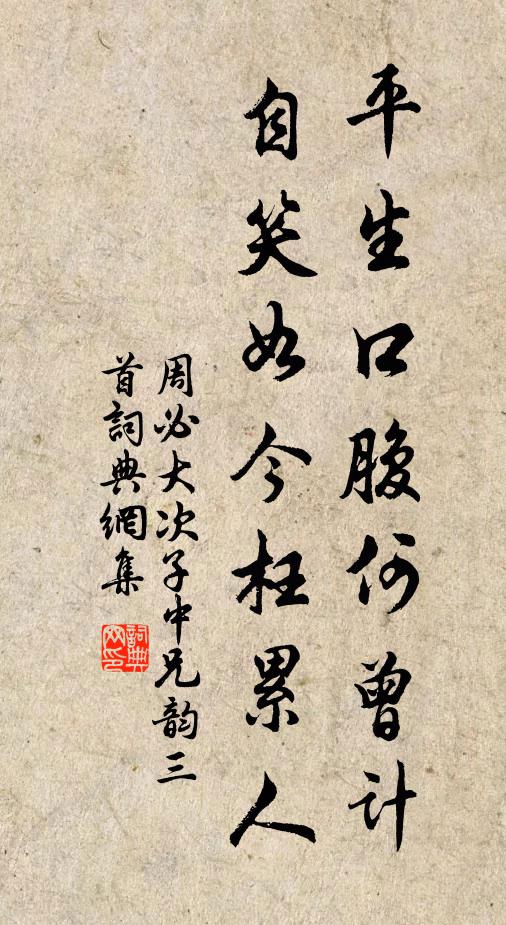 平生口腹何曾计
自笑如今枉累人
周必大次子中兄韵三
首詞典網集
詞典网印